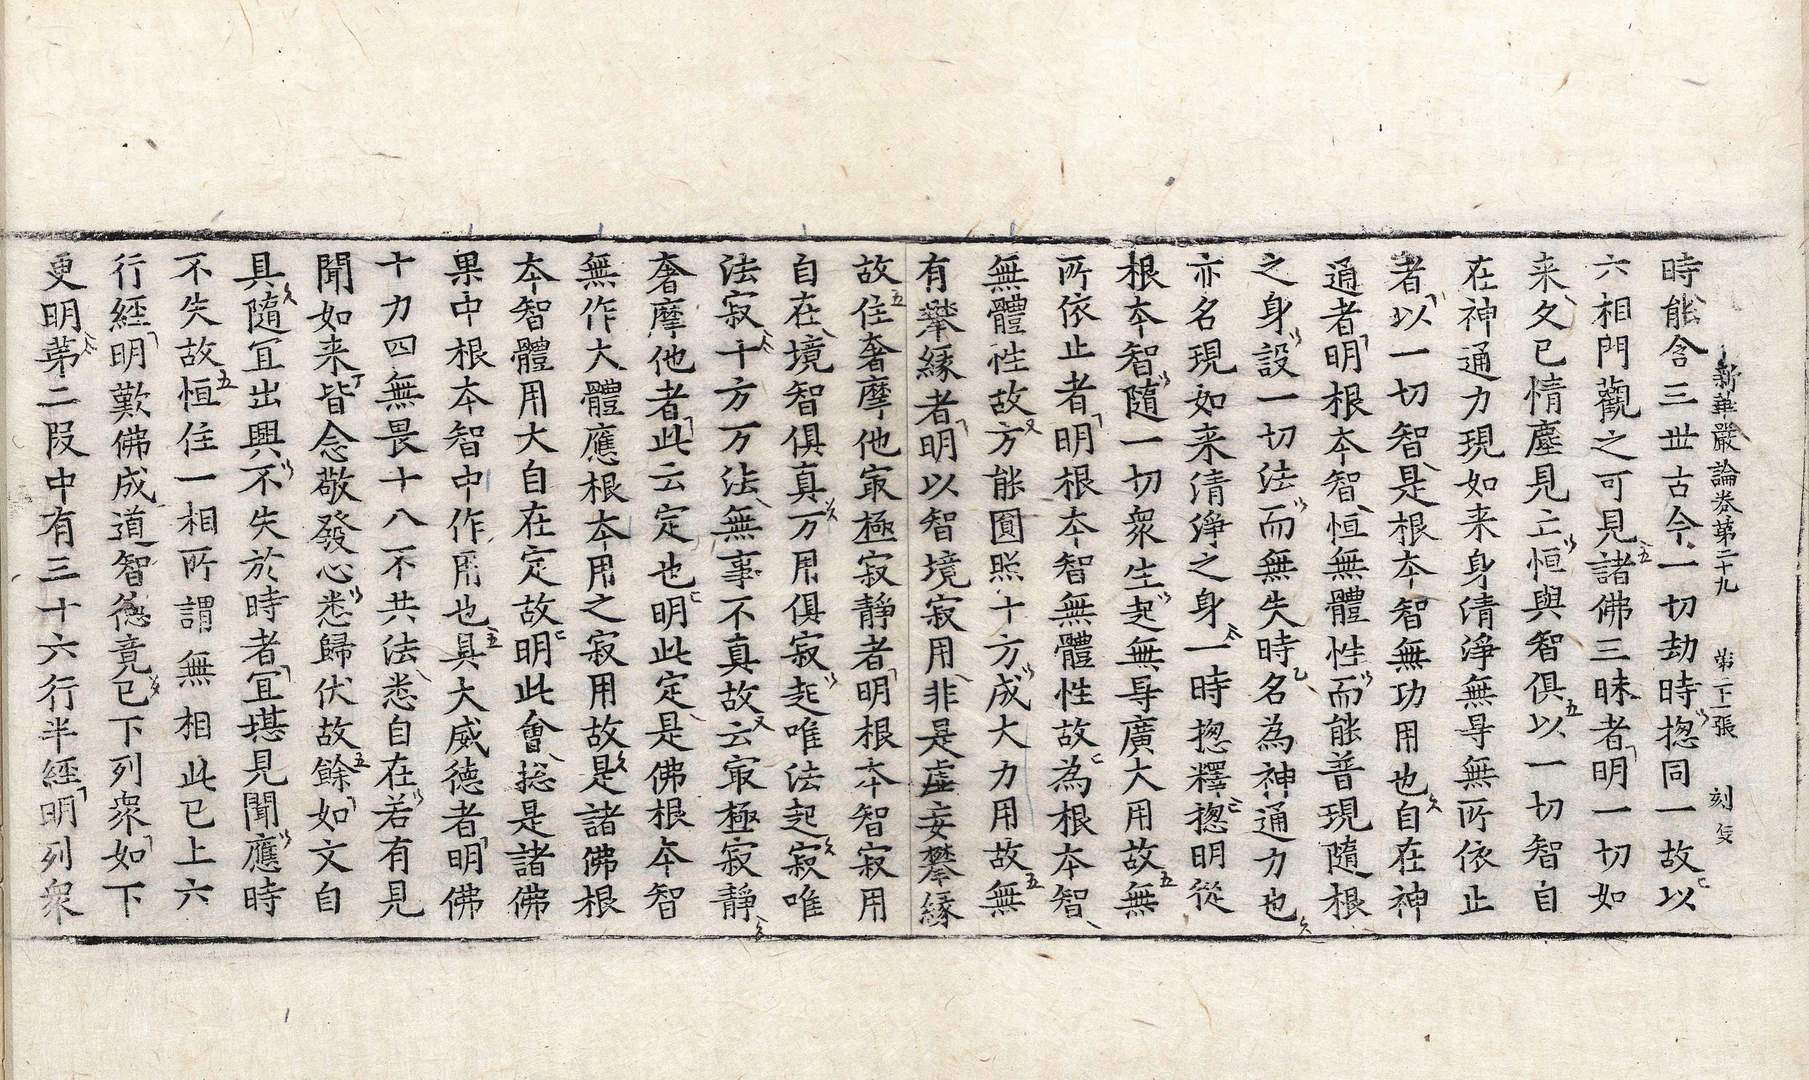 新華嚴論卷第二十九 第二十張 刻
時能含三世古今一切劫時揔同一故以
六相門觀之可見諸佛三昧者明一切如
来久已情塵見亡恒與智俱以一切智自
在神通力現如来身清淨無㝵無所依止
者以一切智是根本智無功用也自在神
通者明根本智恒無體性而能普現隨根
之身設一切法而無失時名為神通力也
亦名現如来清淨之身一時揔釋揔明從
根本智隨一切衆生起無㝵廣大用故無
所依止者明根本智無體性故為根本智
無體性故方能圓照十方成大力用故無
有攀緣者明以智境寂用非是虛妄攀緣
故住奢摩他㝡極寂靜者明根本智寂用
自在境智俱真万用俱寂起唯法起寂唯
法寂十方万法無事不真故云㝡極寂靜
奢摩他者此云定也明此定是佛根本智
無作大體應根本用之寂用故是諸佛根
本智體用大自在定故明此會揔是諸佛
果中根本智中作用也具大威德者明佛
十力四無畏十八不共法悉自在若有見
聞如来皆念敬發心悉歸伏故餘如文自
具隨冝出興不失於時者冝堪見聞應時
不失故恒住一相所謂無相此已上六
行經明歎佛成道智德竟已下列衆如下
更明第二段中有三十六行半經明列衆